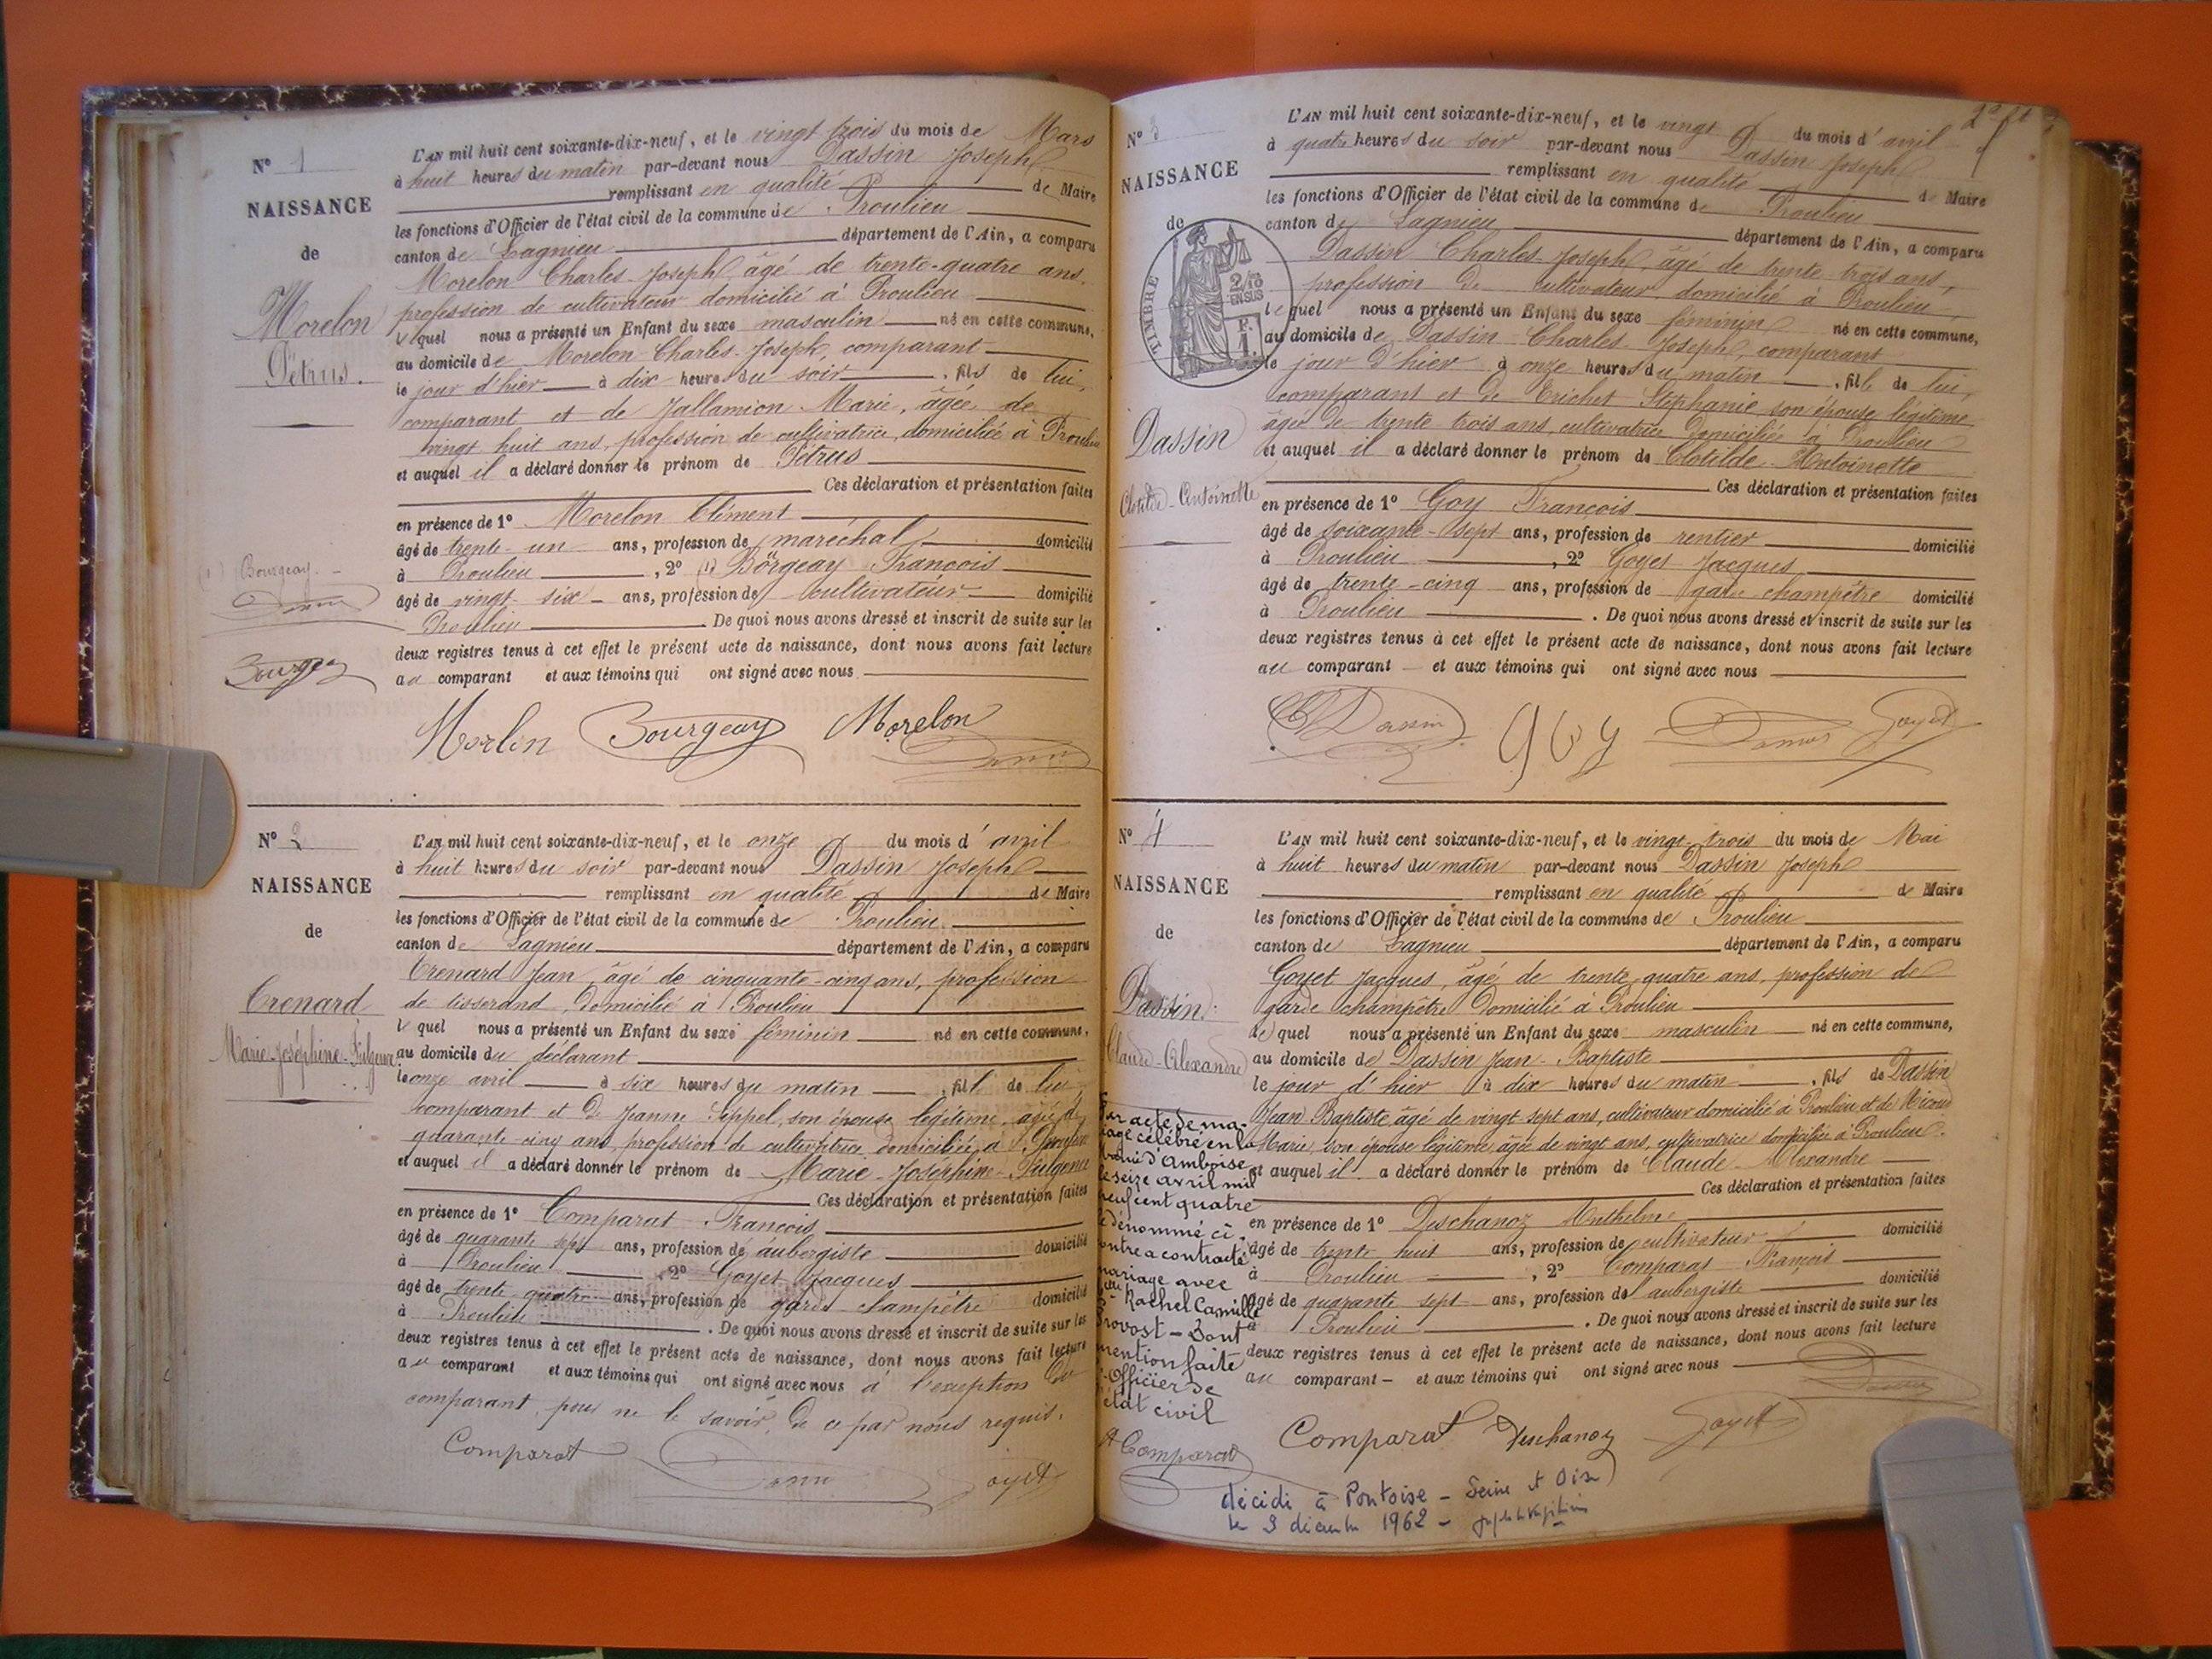 N° 1
NAISSANCE
de
Morelon
Pétrus.
L'AN mil huit cent soixante-dix-neuf, et le vingt trois du mois de Mars
à huit heures du matin par-devant nous Dassin Joseph
remplissant en qualité de Maire
les fonctions d'Officier de l'état civil de la commune de Proulieu
canton de Lagnieu département de l'Ain, a comparu
Morelon Charles-Joseph, âgé de trente-quatre ans,
profession de cultivateur domicilié à Proulieu
lequel nous a présenté un Enfant du sexe masculin né en cette commune,
au domicile de Morelon Charles-Joseph, comparant
le jour d'hier à dix heures du soir, fils de lui,
comparant et de Jallamion Marie, âgée de
vingt huit ans, profession de cultivatrice, domiciliée à Proulieu
et auquel il a déclaré donner le prénom de Pétrus
Ces déclaration et présentation faites
en présence de 1° Morelon Clément
âgé de trente-un ans, profession de maréchal domicilié
à Proulieu, 2° (1) Borgeay François
âgé de vingt-six ans, profession de cultivateur domicilié
Proulieu. De quoi nous avons dressé et inscrit de suite sur les
deux registres tenus à cet effet le présent acte de naissance, dont nous avons fait lecture
au comparant et aux témoins qui ont signé avec nous
(1) Bourgeay
Bourgea
Morlin Bourgeay Morelon
N° 2
NAISSANCE
de
Trenard
Marie-Joséphine-Fulgence
L'AN mil huit cent soixante-dix-neuf, et le onze du mois d'avril
à huit heures du soir par-devant nous Dassin Joseph
remplissant en qualité de Maire
les fonctions d'Officier de l'état civil de la commune de Proulieu
canton de Lagnieu département de l'Ain, a comparu
Trenard Jean, âgé de cinquante-cinq ans, profession
de tisserand, domicilié à Proulieu
lequel nous a présenté un Enfant du sexe féminin né en cette commune,
au domicile du déclarant
le onze avril à six heures du matin, fille de lui
comparant et de Jeanne Seppel, son épouse légitime, âgée de
quarante-cinq ans, profession de cultivatrice domiciliée à Proulieu
et auquel il a déclaré donner le prénom de Marie-Joséphine-Fulgence
Ces déclaration et présentation faites
en présence de 1° Comparat François
âgé de quarante sept ans, profession de aubergiste domicilié
à Proulieu, 2° Goyet Jacques
âgé de trente-quatre ans, profession de garde-champêtre domicilié
à Proulieu. De quoi nous avons dressé et inscrit de suite sur les
deux registres tenus à cet effet le présent acte de naissance, dont nous avons fait lecture
au comparant et aux témoins qui ont signé avec nous à l'exeption du
comparant, pour ne le savoir, de ce par nous requis.
Comparat Goyet
N° 3
NAISSANCE
de
TIMBRE
2/10
EN SUS
Dassin
Clotilde-Antoinette
L'AN mil huit cent soixante-dix-neuf, et le vingt du mois d'avril
à quatre heures du soir par-devant nous Dassin Joseph
remplissant en qualité de Maire
les fonctions d'Officier de l'état civil de la commune de Proulieu
canton de Lagnieu département de l'Ain, a comparu
Dassin Charles-Joseph, âgé de trente-trois ans,
profession de cultivateur, domicilié à Proulieu,
lequel nous a présenté un Enfant du sexe féminin né en cette commune,
au domicile de Dassin Charles Joseph, comparant
le jour d'hier à onze heures du matin, fille de lui,
comparant et de Trichet Stéphanie son épouse légitime
âgée de trente trois ans, cultivatrice domiciliée à Proulieu
et auquel il a déclaré donner le prénom de Clotilde-Antoinette
Ces déclaration et présentation faites
en présence de 1° Goy François
âgé de soixante-sept ans, profession de rentier domicilié
à Proulieu, 2° Goyet Jacques
âgé de trente-cinq ans, profession de garde-champêtre domicilié
à Proulieu. De quoi nous avons dressé et inscrit de suite sur les
deux registres tenus à cet effet le présent acte de naissance, dont nous avons fait lecture
au comparant et aux témoins qui ont signé avec nous
Dassin goy Goyet
N° 4
NAISSANCE
de
Dassin
Claude-Alexandre
L'AN mil huit cent soixante-dix-neuf, et le vingt-trois du mois de Mai
à huit heures du matin par-devant nous Dassin Joseph
remplissant en qualité de Maire
les fonctions d'Officier de l'état civil de la commune de Proulieu
canton de Lagnieu département de l'Ain, a comparu
Goyet Jacques, âgé de trente quatre ans, profession de
garde champêtre domicilié à Proulieu
lequel nous a présenté un Enfant du sexe masculin né en cette commune,
au domicile de Dassin Jean-Baptiste
le jour d'hier à dix heures du matin, fils de Dassin
Jean Baptiste âgé de vingt-sept ans, cultivateur domicilié à Proulieu et de
Marie, son épouse légitime, âgée de vingt ans, cultivatrice domiciliée à Proulieu.
et auquel il a déclaré donner le prénom de Claude-Alexandre
Ces déclaration et présentation faites
en présence de 1° Deschanoz Anthelme
âgé de trente huit ans, profession de cultivateur domicilié
à Proulieu, 2° Comparat François
âgé de quarante sept ans, profession de aubergiste domicilié
à Proulieu. De quoi nous avons dressé et inscrit de suite sur les
deux registres tenus à cet effet le présent acte de naissance, dont nous avons fait lecture
au comparant et aux témoins qui ont signé avec nous
Par acte de ma-
riage célébré en la
mairie d'Amboise
le seize avril mil
neuf cent quatre
le dénommé ci-
contre a contracté
mariage avec
Rachel Camille
Provost - Dont
mention faite
l'Officier de
l'état civil
Comparat
Comparat Deschanoz Goyet
décédé à Pontoise - Seine et Oise
le 3 décembre 1962 -